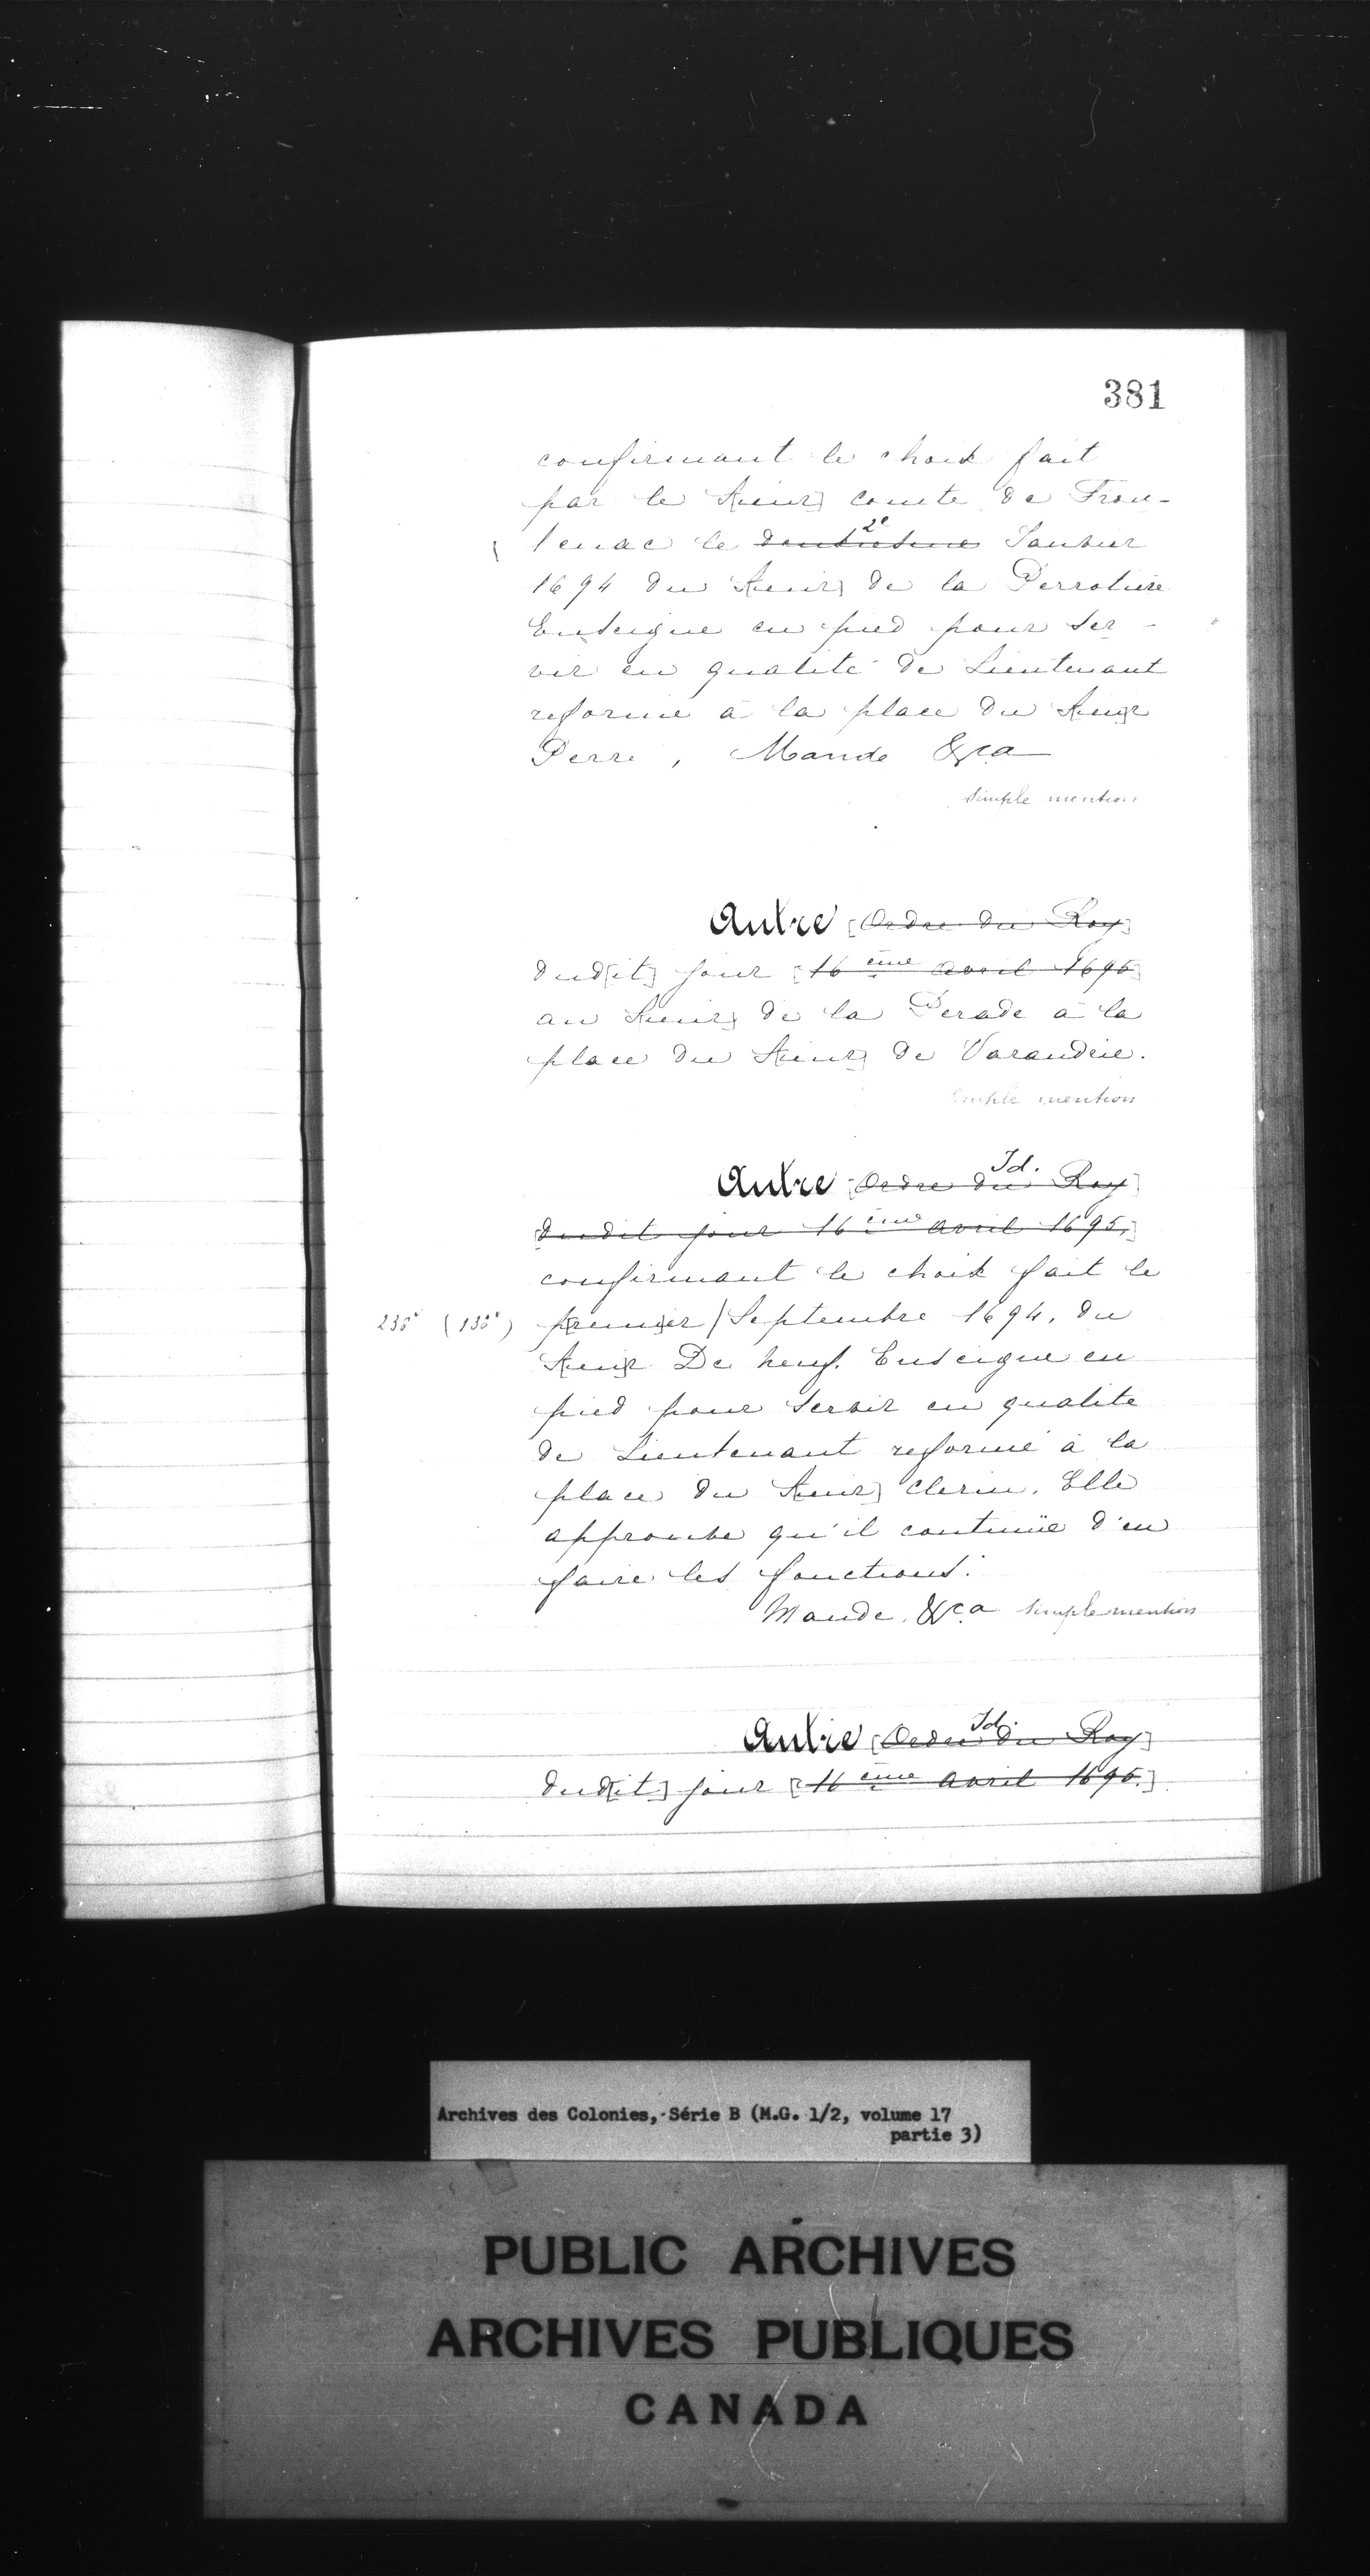 381
confirmant le choix fait
par le S[ieur] comte de Fron-
tenac le deuxiesme 2e Janvier
1694 du S[ieur] de la Perrotiere
Enseigne en pied pour ser-
vir en qualité de Lieutenant
reformé à la place du S[ieu]r
Perré, Mande &ca
simple mention
Autre [Ordre du Roy]
dud[it] jour [16ème avril 1695]
au S[ieur] de la Perade à la
place du S[ieur] de Varandrie.
simple mention
Autre [Ordre du Roy] Id.
[dudit jour 16ème avril 1695,]
confirmant le choix fait le
p[remi]er / Septembre 1694, du
S[ieu]r De Neuf. Enseigne en
pied pour servir en qualité
de Lieutenant reformé à la
place du S[ieur] Clerin. Elle
approuve qu'il continüe d'en
faire les fonctions.
Mande, &ca simple mention
Autre [Ordre du Roy] Id.
dud[it] jour [16ème avril 1695.]
Archives des Colonies, Série B (M.G. 1/2, volume 17
partie 3)
PUBLIC ARCHIVES
ARCHIVES PUBLIQUES
CANADA